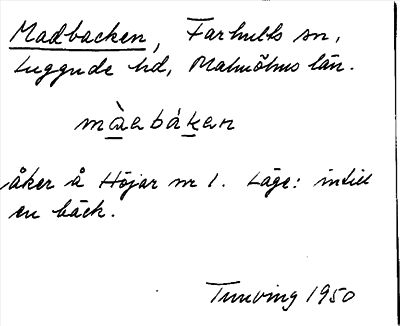 Madbacken, Farhults sn,
Luggude hd, Malmöhus län.
màaebákaen
åker å Höjar nr 1. Läge: intill
en bäck.
Tunving 1950